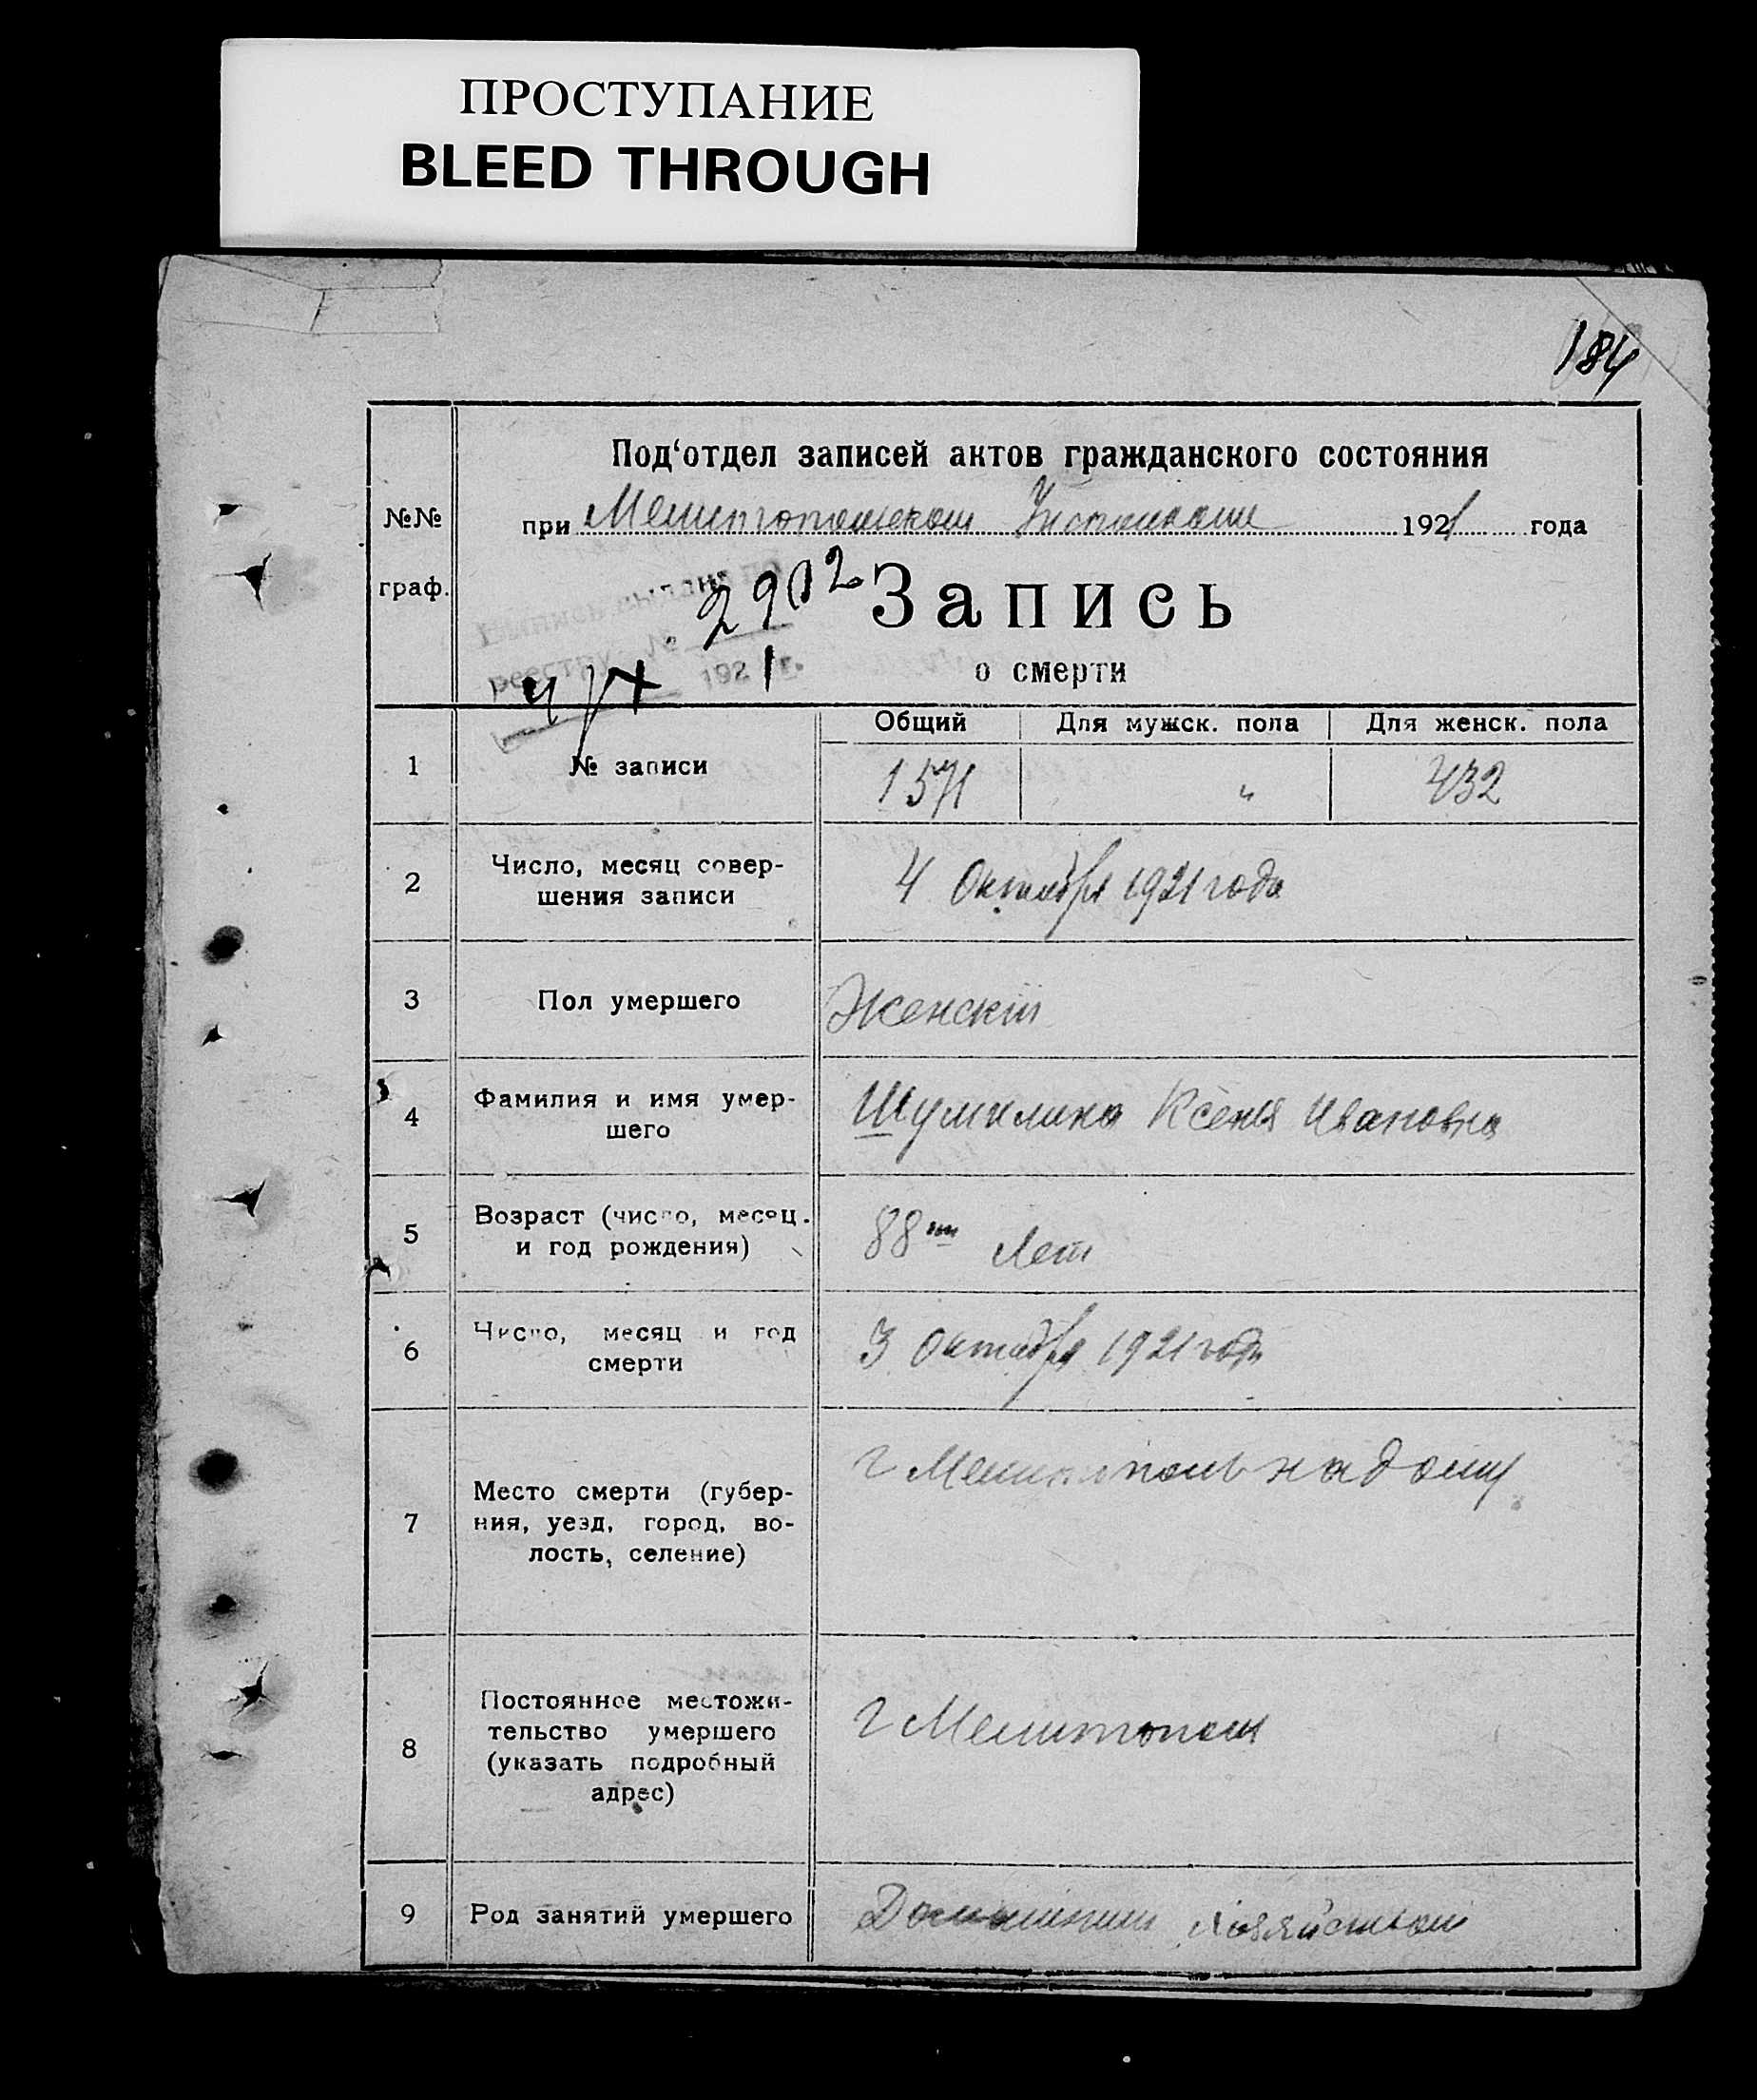 ПРОСТУПАНИЕ
BLEED THROUGH
184
Под‘отдел записей актов гражданского состояния
№№ граф.
при Мелитопольском Уисполкоме 1921 года
2902
Запись
192 1 г.
о смерти
Общий Для мужск. пола Для женск. пола
1 № записи 1571 " 732
2 Число, месяц совер-
шения записи
4 Октября 1921 года
3 Пол умершего Женскій
4 Фамилия и имя умер-
шего
Шумилина Ксенія Ивановна
5 Возраст (число, месяц.
и год рождения)
88ми Лет
6 Число, месяц и год
смерти
3 Октября 1921 года
7 Место смерти (губер-
ния, уезд, город, во-
лость, селение)
г Мелитополь на дому
8 Постоянное местожи-
тельство умершего
(указать подробный
адрес)
г Мелитополь
9 Род занятий умершего Домашним хозяйством